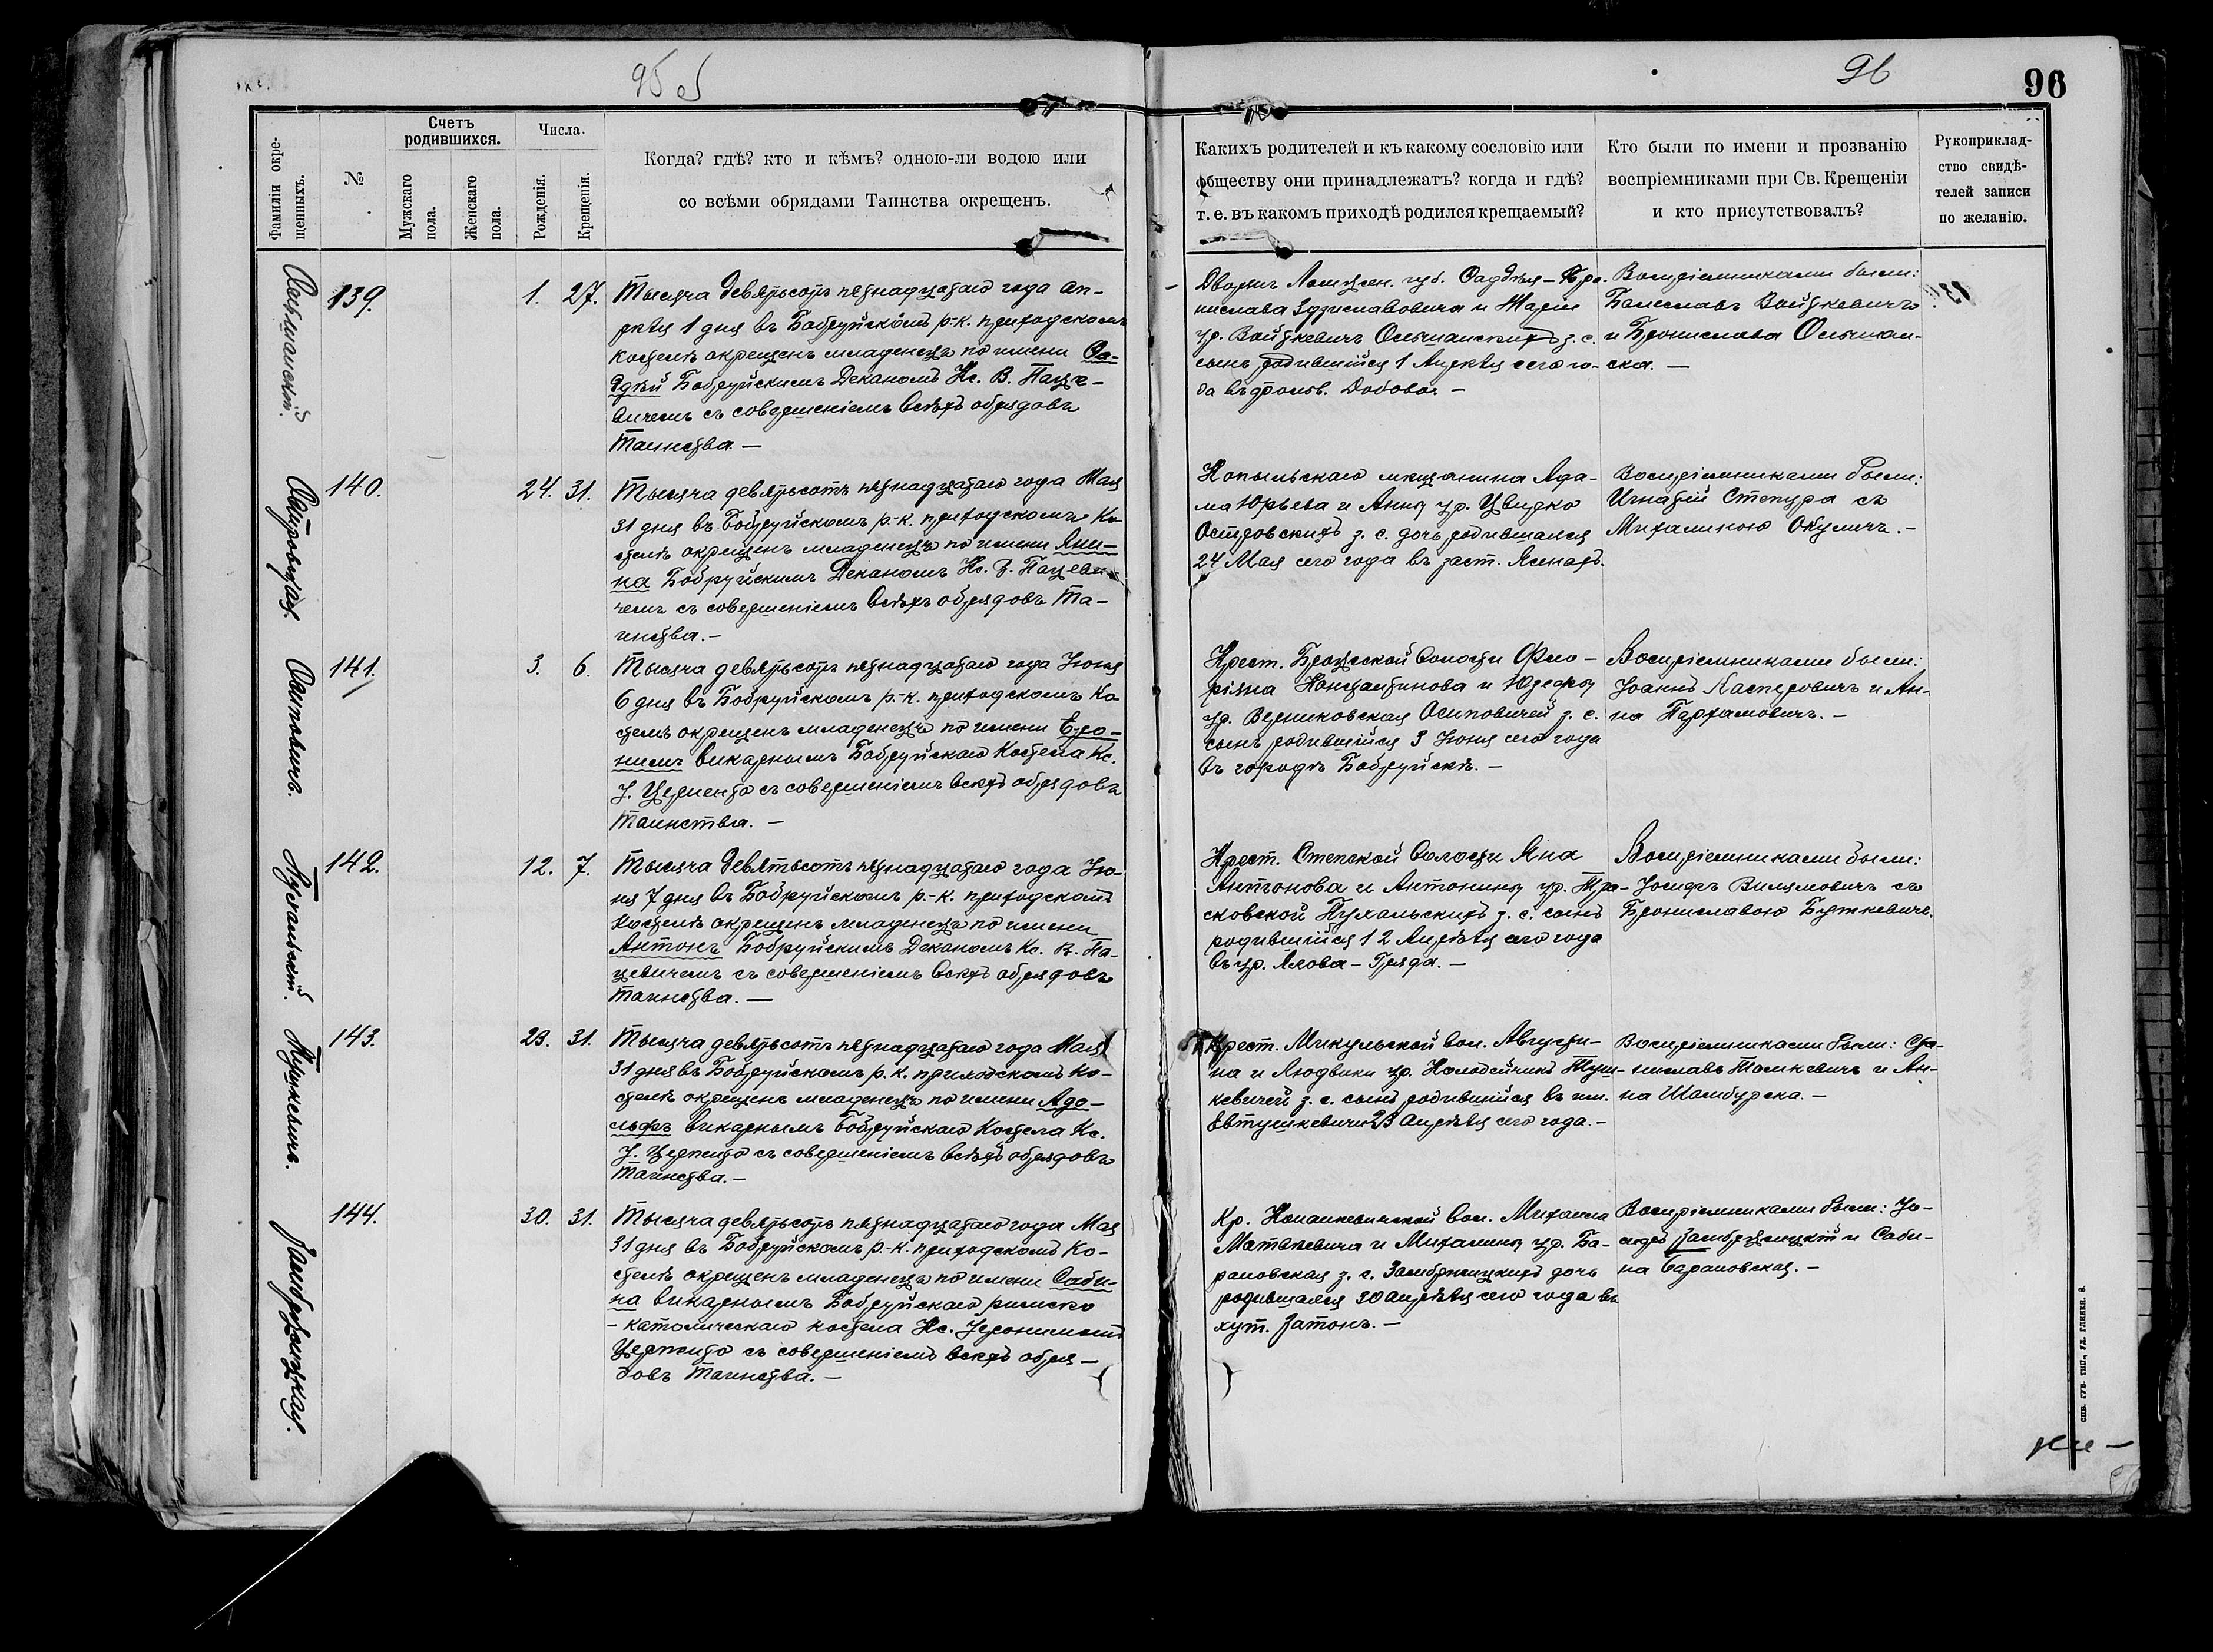 95 об
96
96
Фамиліи окре-
щенныхъ.
№
Счетъ
родившихся.
Мужскаго
пола.
Женскаго
пола.
Числа.
Рожденія.
Крещенія.
Когда? гдѣ? кто и кѣмъ? одною-ли водою или
со всѣми обрядами Таинства окрещенъ.
Какихъ родителей и къ какому сословію или
обществу они принадлежатъ? когда и гдѣ?
т. е. въ какомъ приходѣ родился крещаемый?
Кто были по имени и прозванію
воспріемниками при Св. Крещеніи
и кто присутствовалъ?
Рукоприклад-
ство свидѣ-
телей записи
по желанію.
Ольшанскій.
139.
1. 27.
Тысяча девятьсотъ пятнадцатаго года Ап-
рѣля 1 дня въ Бобруйскомъ р.-к. приходскомъ
костелѣ окрещенъ младенецъ по имени Фа-
дѣй Бобруйскимъ Деканомъ Кс. В. Паце-
вичемъ съ совершеніемъ всѣхъ обрядовъ
Таинства. —
Дворянъ губ. Фаддѣя-Бро-
нислава Здзиславовича и Маріи
ур. Войткевичъ Ольшанскихъ з. с.
сынъ, родившійся 1 Апрѣля сего го-
да въ фольв. Добово. —
Воспріемниками были:
Болеславъ Войткевичъ
и Бронислава Ольшан-
ска. —
Островская.
140.
24. 31.
Тысяча девятьсотъ пятнадцатаго года Мая
31 дня въ Бобруйскомъ р.-к. приходскомъ Ко-
стелѣ окрещенъ младенецъ по имени Яни-
на Бобруйскимъ Деканомъ Кс. В. Пацеви-
чемъ съ совершеніемъ всѣхъ обрядовъ Та-
инства. —
Копыльскаго мѣщанина Ада-
ма Юрьева и Анны ур. Цвирко
Островскихъ з. с. дочь родившаяся
24 Мая сего года въ заст. Ясенахъ.
Воспріемниками были:
Игнатій Степура съ
Михалиною Окуличъ. —
Осиповичъ.
141.
3. 6.
Тысяча девятьсотъ пятнадцатаго года Іюня
6 дня въ Бобруйскомъ р.-к. приходскомъ Ко-
стелѣ окрещенъ младенецъ по имени Еро-
нимъ викарнымъ Бобруйскаго Костела Кс.
І. Церпенто съ совершеніемъ всѣхъ обрядовъ
Таинства. —
Крест. Брожской Волости Фло-
ріяна Константинова и Юзефы
ур. Верниковская Осиповичей з. с.
сынъ родившійся 3 Іюня сего года
въ городѣ Бобруйскѣ. —
Воспріемниками были:
Іоаннъ Касперовичъ и Ан-
на Пархамовичъ. —
Пухальскій.
142.
12. 7.
Тысяча девятьсотъ пятнадцатаго года Ію-
ня 7 дня въ Бобруйскомъ р.-к. приходскомъ
Костелѣ окрещенъ младенецъ по имени
Антонъ Бобруйскимъ Деканомъ Кс. В. Па-
цевичемъ съ совершеніемъ всѣхъ обрядовъ
Таинства. —
Крест. Степской Волости Яна
Антонова и Антонины ур. Тро-
сковской Пухальскихъ з. с. сынъ
родившійся 12 Апрѣля сего года
въ ур. Ялова-Гряда. —
Воспріемниками были:
Іосифъ Вилямовичъ съ
Брониславою Буткевичъ.
Тушкевичъ.
143.
23. 31.
Тысяча девятьсотъ пятнадцатаго года Мая
31 дня въ Бобруйскомъ р.-к. приходскомъ Ко-
стелѣ окрещенъ младенецъ по имени Адо-
льфъ викарнымъ Бобруйскаго Костела Кс.
І. Церпенто съ совершеніемъ всѣхъ обрядовъ
Таинства. —
Крест. Микульской вол. Августи-
на и Людвики ур. Колодейчикъ Туш-
кевичей з. с. сынъ родившійся въ им.
Евтушкевичи 23 Апрѣля сего года. —
Воспріемниками были: Ста-
ниславъ Томкевичъ и Ан-
на Шамбурска. —
Замбржицкая.
144.
30. 31.
Тысяча девятьсотъ пятнадцатаго года Мая
31 дня въ Бобруйскомъ р.-к. приходскомъ Ко-
стелѣ окрещенъ младенецъ по имени Саби-
на викарнымъ Бобруйскаго римско
-католическаго костела Кс. Іеронимомъ
Церпенто съ совершеніемъ всѣхъ обря-
довъ Таинства. —
Кр. вол. Михаила
Матвѣевича и Михалины ур. Ба-
рановская з. с. Замбржицкихъ дочь
родившаяся 30 Апрѣля сего года въ
хут. Затонъ. —
Воспріемниками были: Іо-
сифъ Замбржицкій и Саби-
на Барановская. —
СПБ. ГУБ. ТИП., УЛ. ГЛИНКИ, 8.